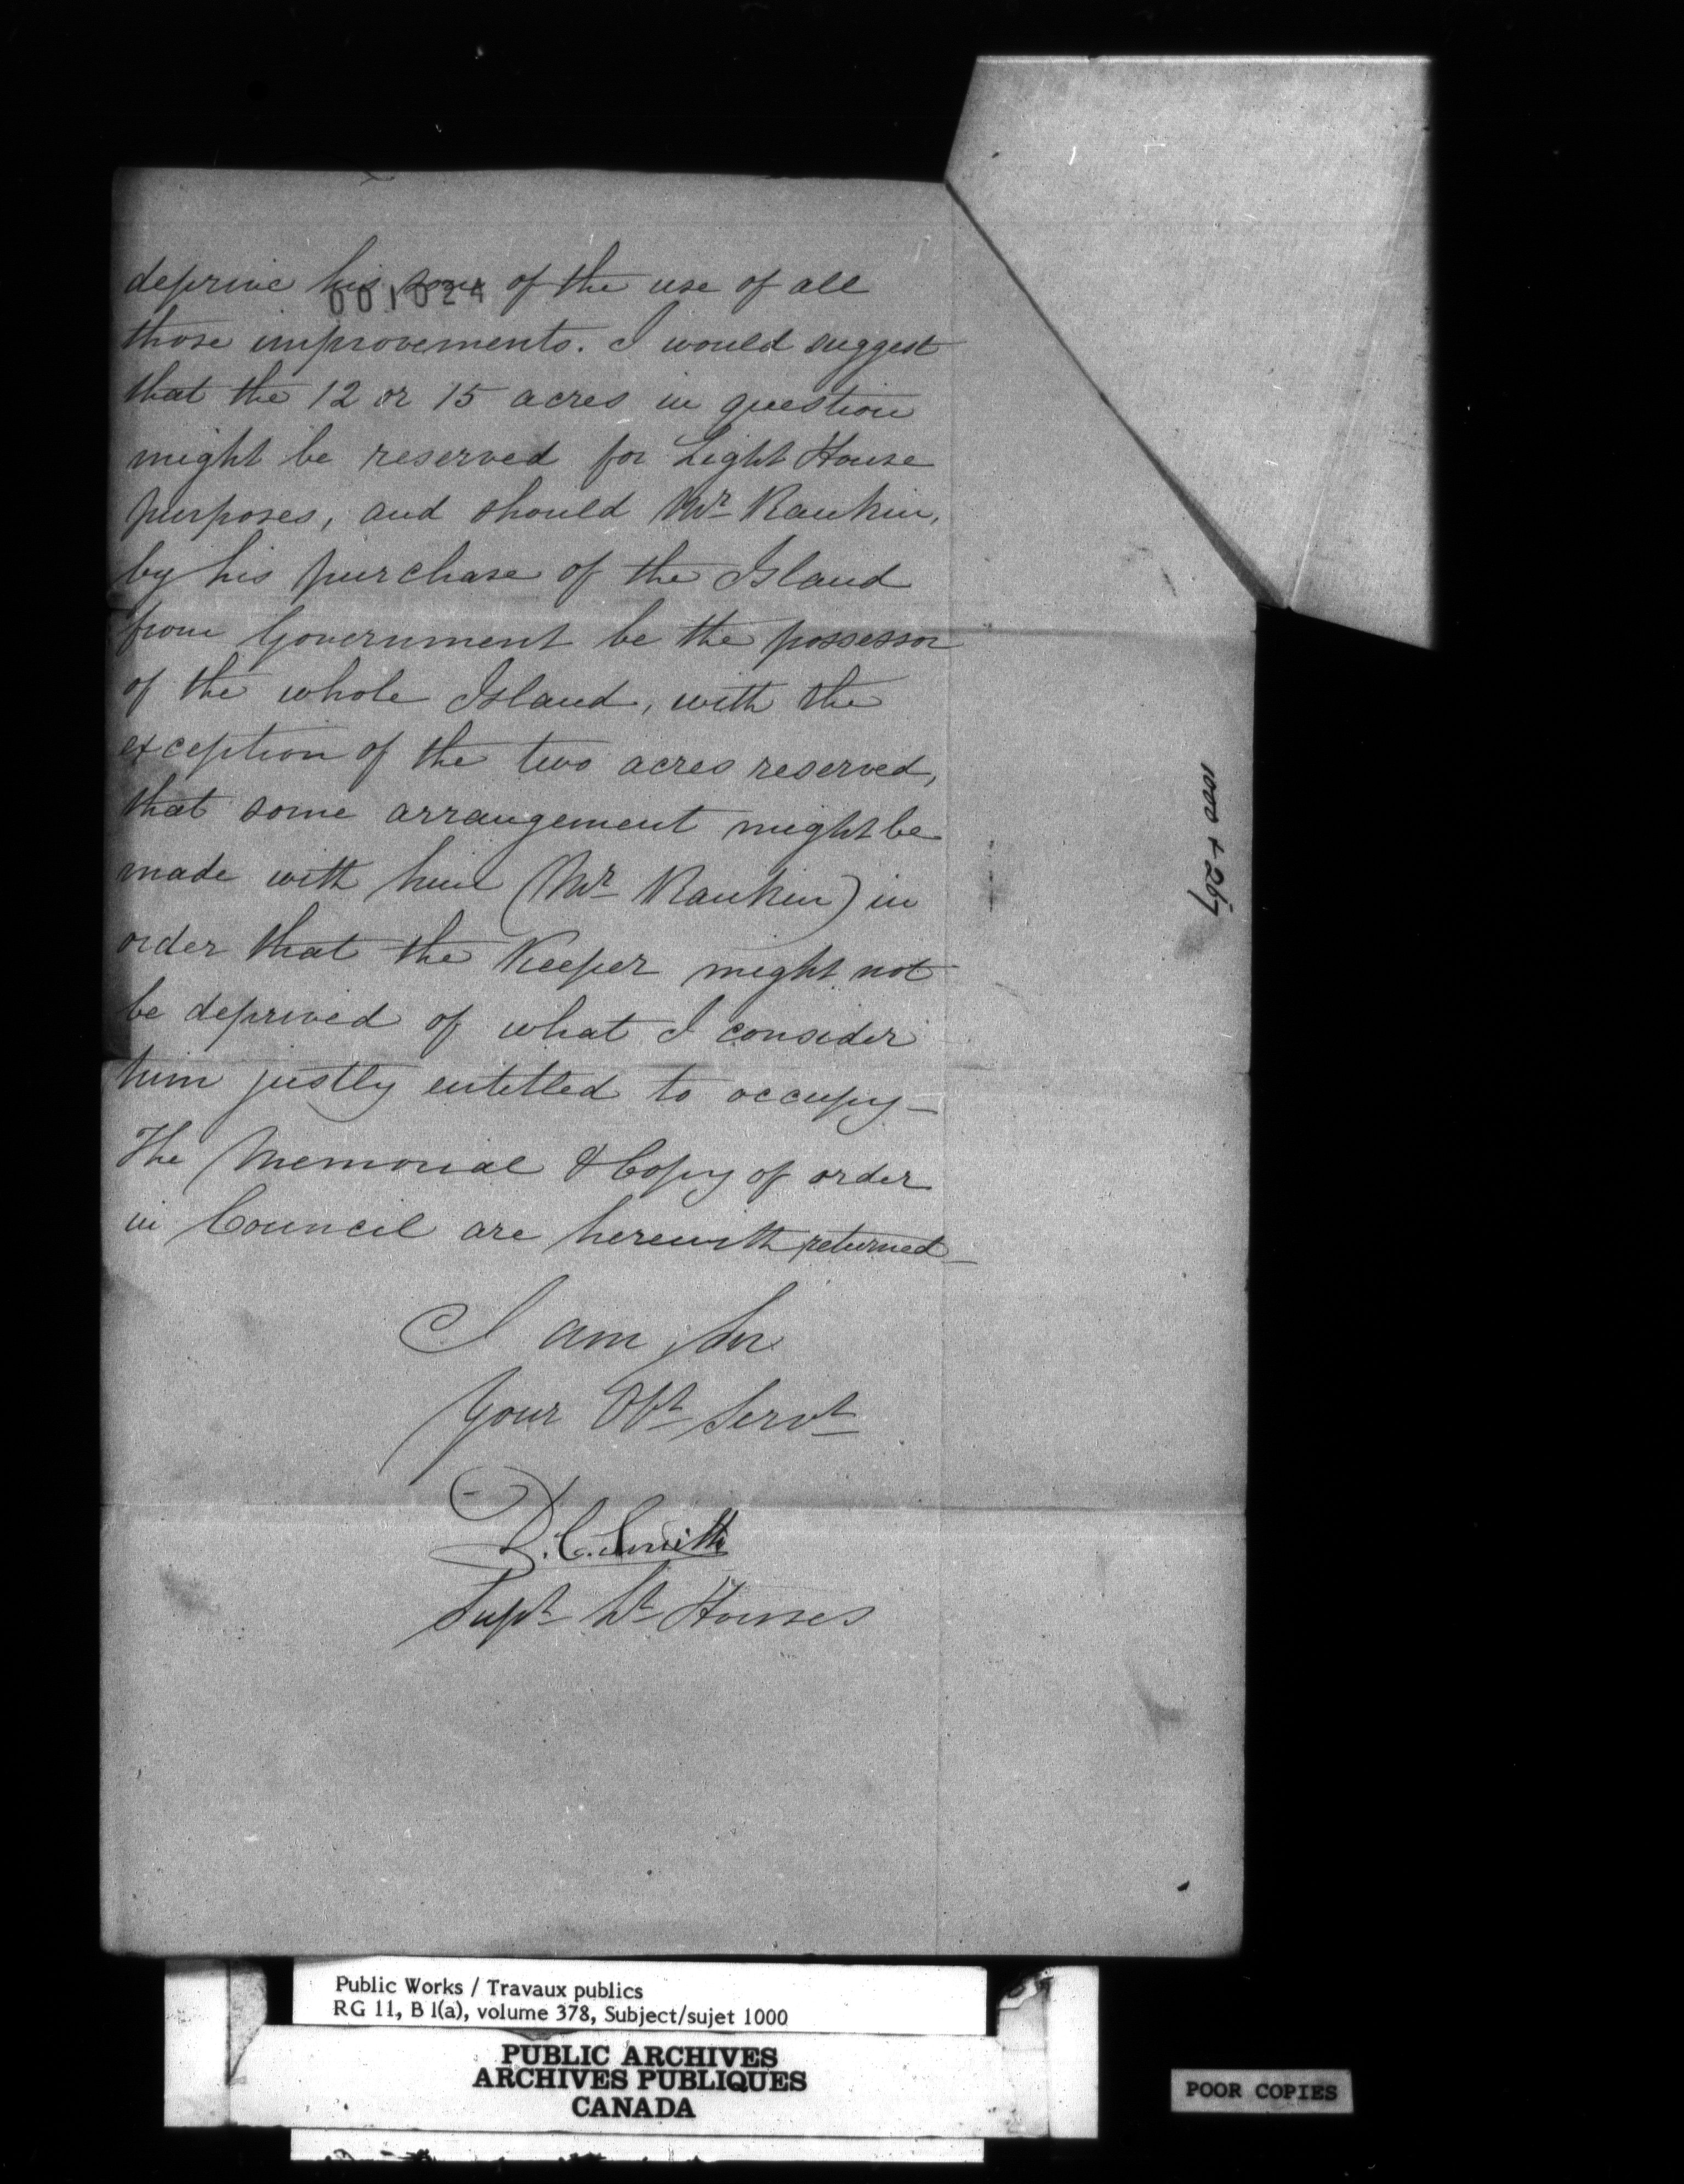 deprive his son of the use of all
001024
those improvements. I would suggest
that the 12 or 15 acres in question
might be reserved for Light House
purposes, and should Mr Rankin,
by his purchase of the Island
from Government be the possessor
of the whole Island, with the
exception of the two acres reserved,
that some arrangement might be
made with him (Mr Rankin) in
order that the Keeper might not
be deprived of what I consider
him justly entitled to occupy—
The Memorial & Copy of order
in Council are herewith returned—
I am Sir
Your Obt Servt
D. C. Smith
Supt Lt Houses
Public Works / Travaux publics
RG 11, B 1(a), volume 378, Subject/sujet 1000
PUBLIC ARCHIVES
ARCHIVES PUBLIQUES
CANADA
POOR COPIES